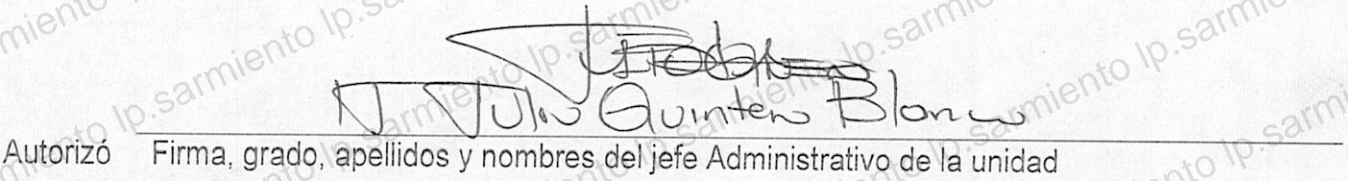 IT Julio Quintero Blanco
Autorizó Firma, grado, apellidos y nombres del jefe Administrativo de la unidad
lp.sarmiento lp.sarmiento lp.sarmiento lp.sarmiento